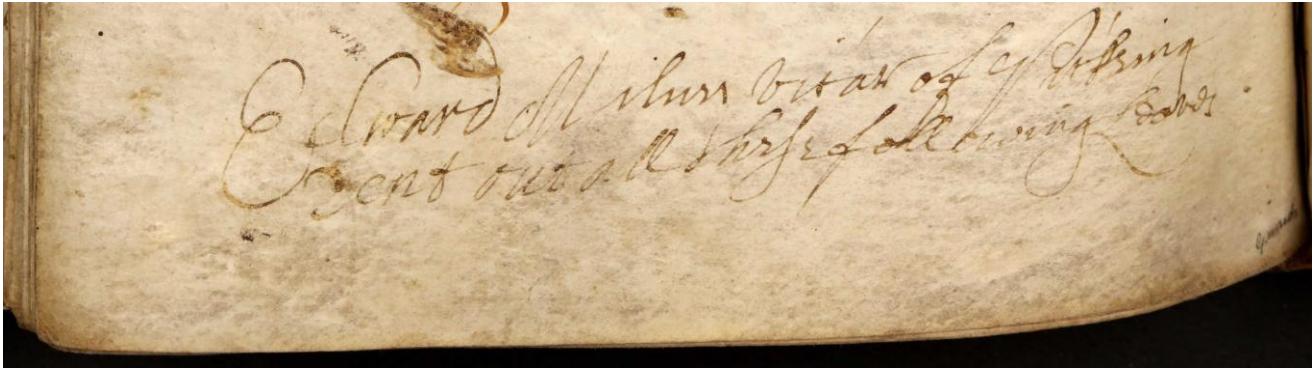 Edward Milner vicar of Pickring
Rent out all these following leaves